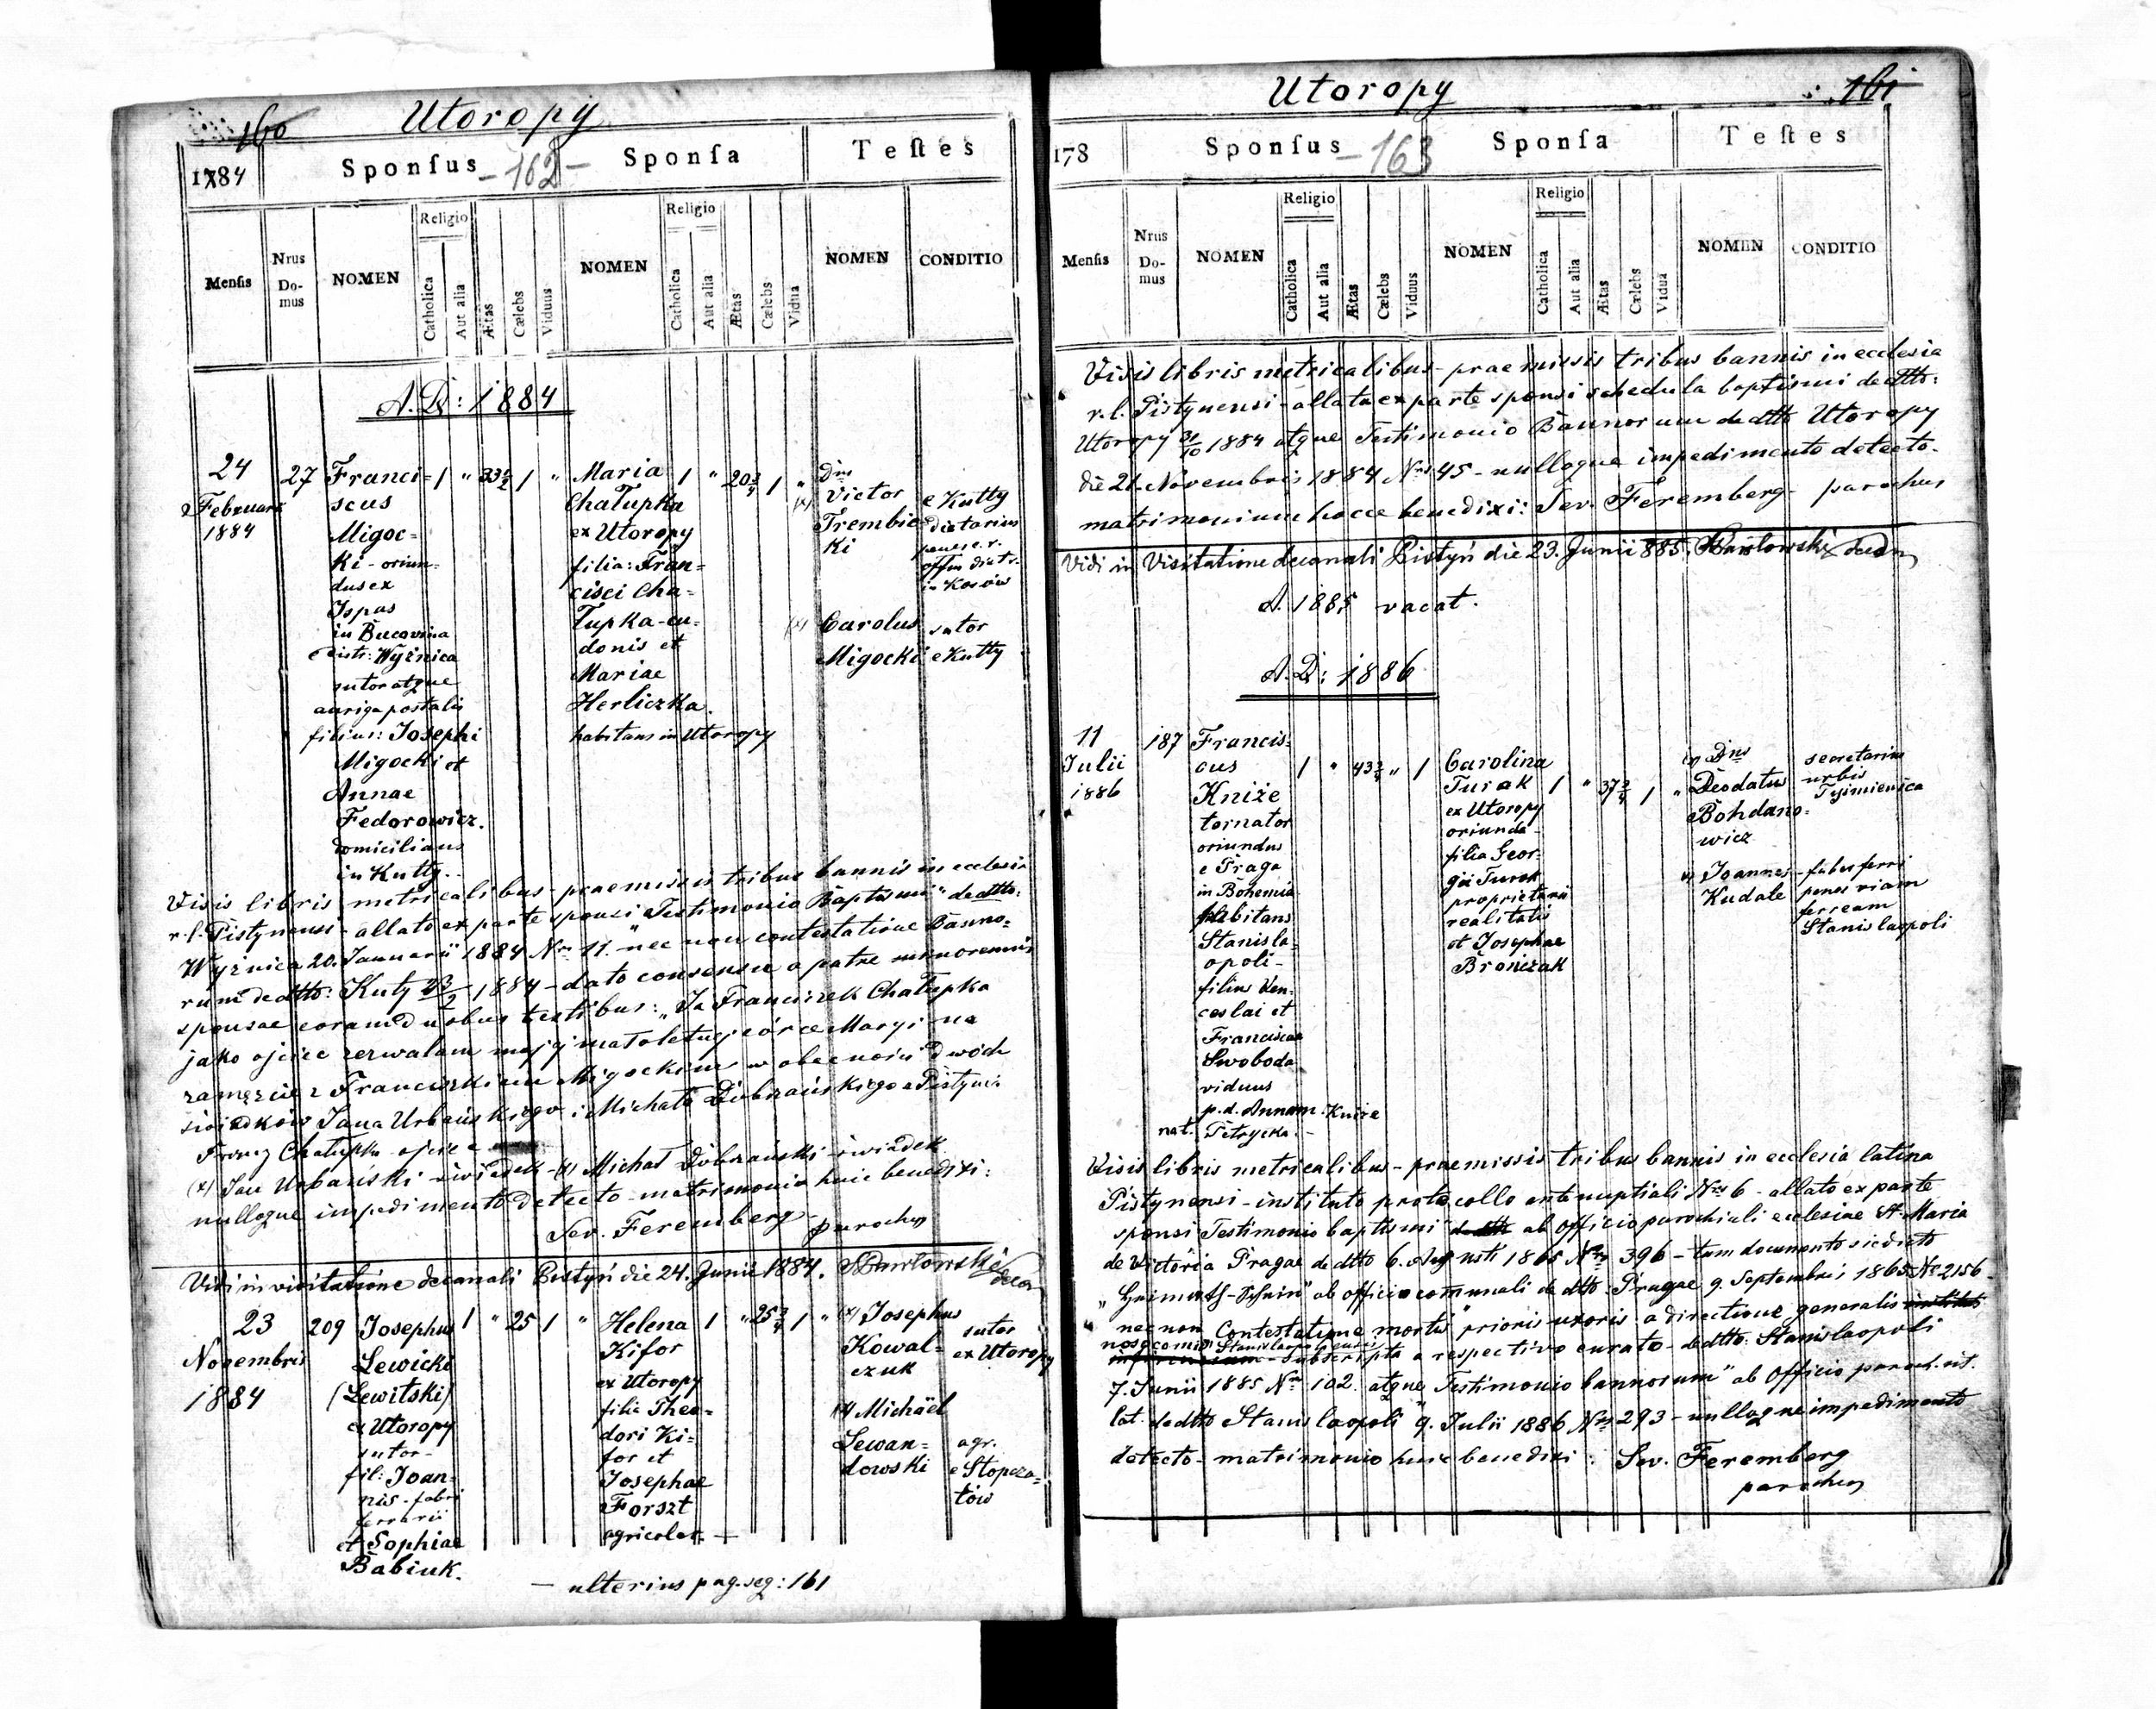 160
Utoropy
1884
Sponſus
- 162 -
Sponſa
Teſtes
Menſis
Nrus Do-mus
NOMEN
Religio
Catholica
Aut alia
Ætas
Cælebs
Viduus
NOMEN
Religio
Catholica
Aut alia
Ætas
Cælebs
Vidua
NOMEN
CONDITIO
A. D: 1884
24
Februarii
1884
27
Franci=
scus
Migoc=
ki - oriun=
dus ex
Ispas
in Bucovina
distr: Wyżnica
sutor atque
auriga postalis
filius: Josephi
Migocki et
Annae
Fedorowicz.
domicilians
in Kutty.
1 " 33 1 "
Maria
Chałupka
ex Utoropy
filia: Fran=
cisci Cha=
łupka - cu=
donis et
Mariae
Herliczka.
habitans in Utoropy
1 " 20 3/4 1 "
Dnus
(x) Victor
Trembic
ki
e Kutty
dietarius
penes c. r.
in Kosów
(x) Carolus
Migocki
sutor
e Kutty
Visis libris metricalibus - praemissis tribus bannis in ecclesia
r. l. Pistynensi - allato ex parte sponsi "Testimonio Baptismi" de dtto:
Wyżnica 20. Januarii 1884 Nro 11. nec non contestatione Banno=
rum de dtto: Kuty 23/2 1884 - dato consensu a patre minorennis
sponsae coram duobus testibus: "Ja Franciszek Chałupka
jako ojciec zezwalam mojej małoletniej córce Maryi na
zamęzcie z Franciszkiem Migockim w obecności dwóch
świadków Jana Urbańskiego i Michała Dobrzańskiego z Pistynia
Franz Chałupka ojciec
(x) Jan Urbański świadek - (x) Michał Dobrzański świadek
nulloque impedimento detecto - matrimonio huic benedixi:
Sev. Feremberg
parochus
Vidi in visitatione decanali Pistyń die 24. Junii 1884. Pawłowski decan
23
Novembris
1884
209
Josephus
Lewicki
(Lewitski)
ex Utoropy
sutor -
fil: Joan=
nis - fabri
ferrarii
et Sophiae
Babiuk.
1 " 25 1 "
Helena
Kifor
ex Utoropy
filia Theo=
dori Ki=
for et
Josephae
Forszt
agricolar. -
1 " 25 3/4 1 "
(x) Josephus
Kowal=
czuk
sutor
ex Utoropy
(x) Michäel
Lewan=
dowski
agr.
e Stopcza=
tów
- ulterius pag. seq: 161
161
Utoropy
178
Sponſus
- 163
Sponſa
Teſtes
Menſis
Nrus Do-mus
NOMEN
Religio
Catholica
Aut alia
Ætas
Cælebs
Viduus
NOMEN
Religio
Catholica
Aut alia
Ætas
Cælebs
Vidua
NOMEN
CONDITIO
Visis libris metricalibus - praemissis tribus bannis in ecclesia
r. l. Pistynensi - allata ex parte sponsi schedula baptismi de dtto:
Utoropy 31/10 1884 atque Testimonio Bannorum de dtto Utoropy
die 21. Novembris 1884 Nro 45 - nulloque impedimento detecto -
matrimonium hocce benedixi: Sev. Feremberg - parochus
Vidi in Visitatione decanali Pistyń die 23. Junii 885. Pawłowski decan
A. 1885 vacat.
A. D: 1886
11
Julii
1886
187
Francis=
cus
Kniże
tornator
oriundus
e Praga
in Bohemia
habitans
Stanisla=
opoli -
filius Ven=
ceslai et
Franciscae
Swoboda
viduus
p. d. Annam Kniże
nat. Petrycka. -
1 " 43 3/4 " 1
Carolina
Turak
ex Utoropy
oriunda -
filia Geor=
gii Turak
proprietarii
realitatis
et Josephae
Brończak
1 " 37 3/4 1 "
(x) Dnus
Deodatus
Bohdano=
wicz
secretarius
urbis
Tyśmienica
(x) Joannes
Kudale
- faber ferri
penes viam
ferream
Stanislaopoli
Visis libris metricalibus - praemissis tribus bannis in ecclesia latina
Pistynensi - instituto protocollo antenuptiali Nro 6 - allato ex parte
sponsi Testimonio baptismi ab officio parochiali ecclesiae St. Maria
de Victoria Pragae de dtto 6. Augusti 1865 Nro 396 - tum documento sic dicto
"Heimath-Schein" ab officio comunali de dtto: Pragae 9. Septembris 1865 No 2156 -
nec non "Contestatione mortis" prioris uxoris a directione generalis
nosocomii Stanislaopoliensis - subscripta a respectivo curato - de dtto: Stanislaopoli
7. Junii 1885 Nro 102. atque "Testimonio bannorum" ab Officio paroch. rit.
lat. de dtto Stanislaopoli 9. Julii 1886 Nro 293 - nulloque impedimento
detecto - matrimonio huic benedixi: Sev. Feremberg
parochus